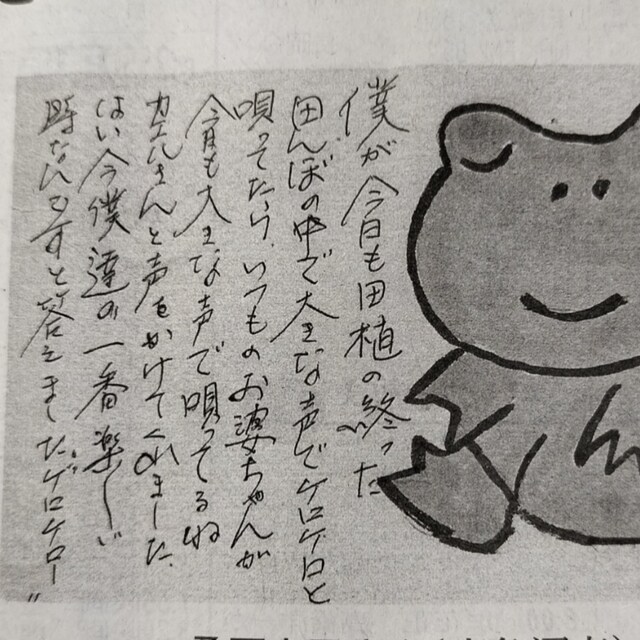 僕が今日も田植の終った
田んぼの中で大きな声でケロケロと
唄ってたら、いつものお婆ちゃんが
今日も大きな声で唄ってるね
カエルさんと声をかけてくれました。
はい今僕達の一番楽しい
時なんですと答えました。ゲロゲロー〃